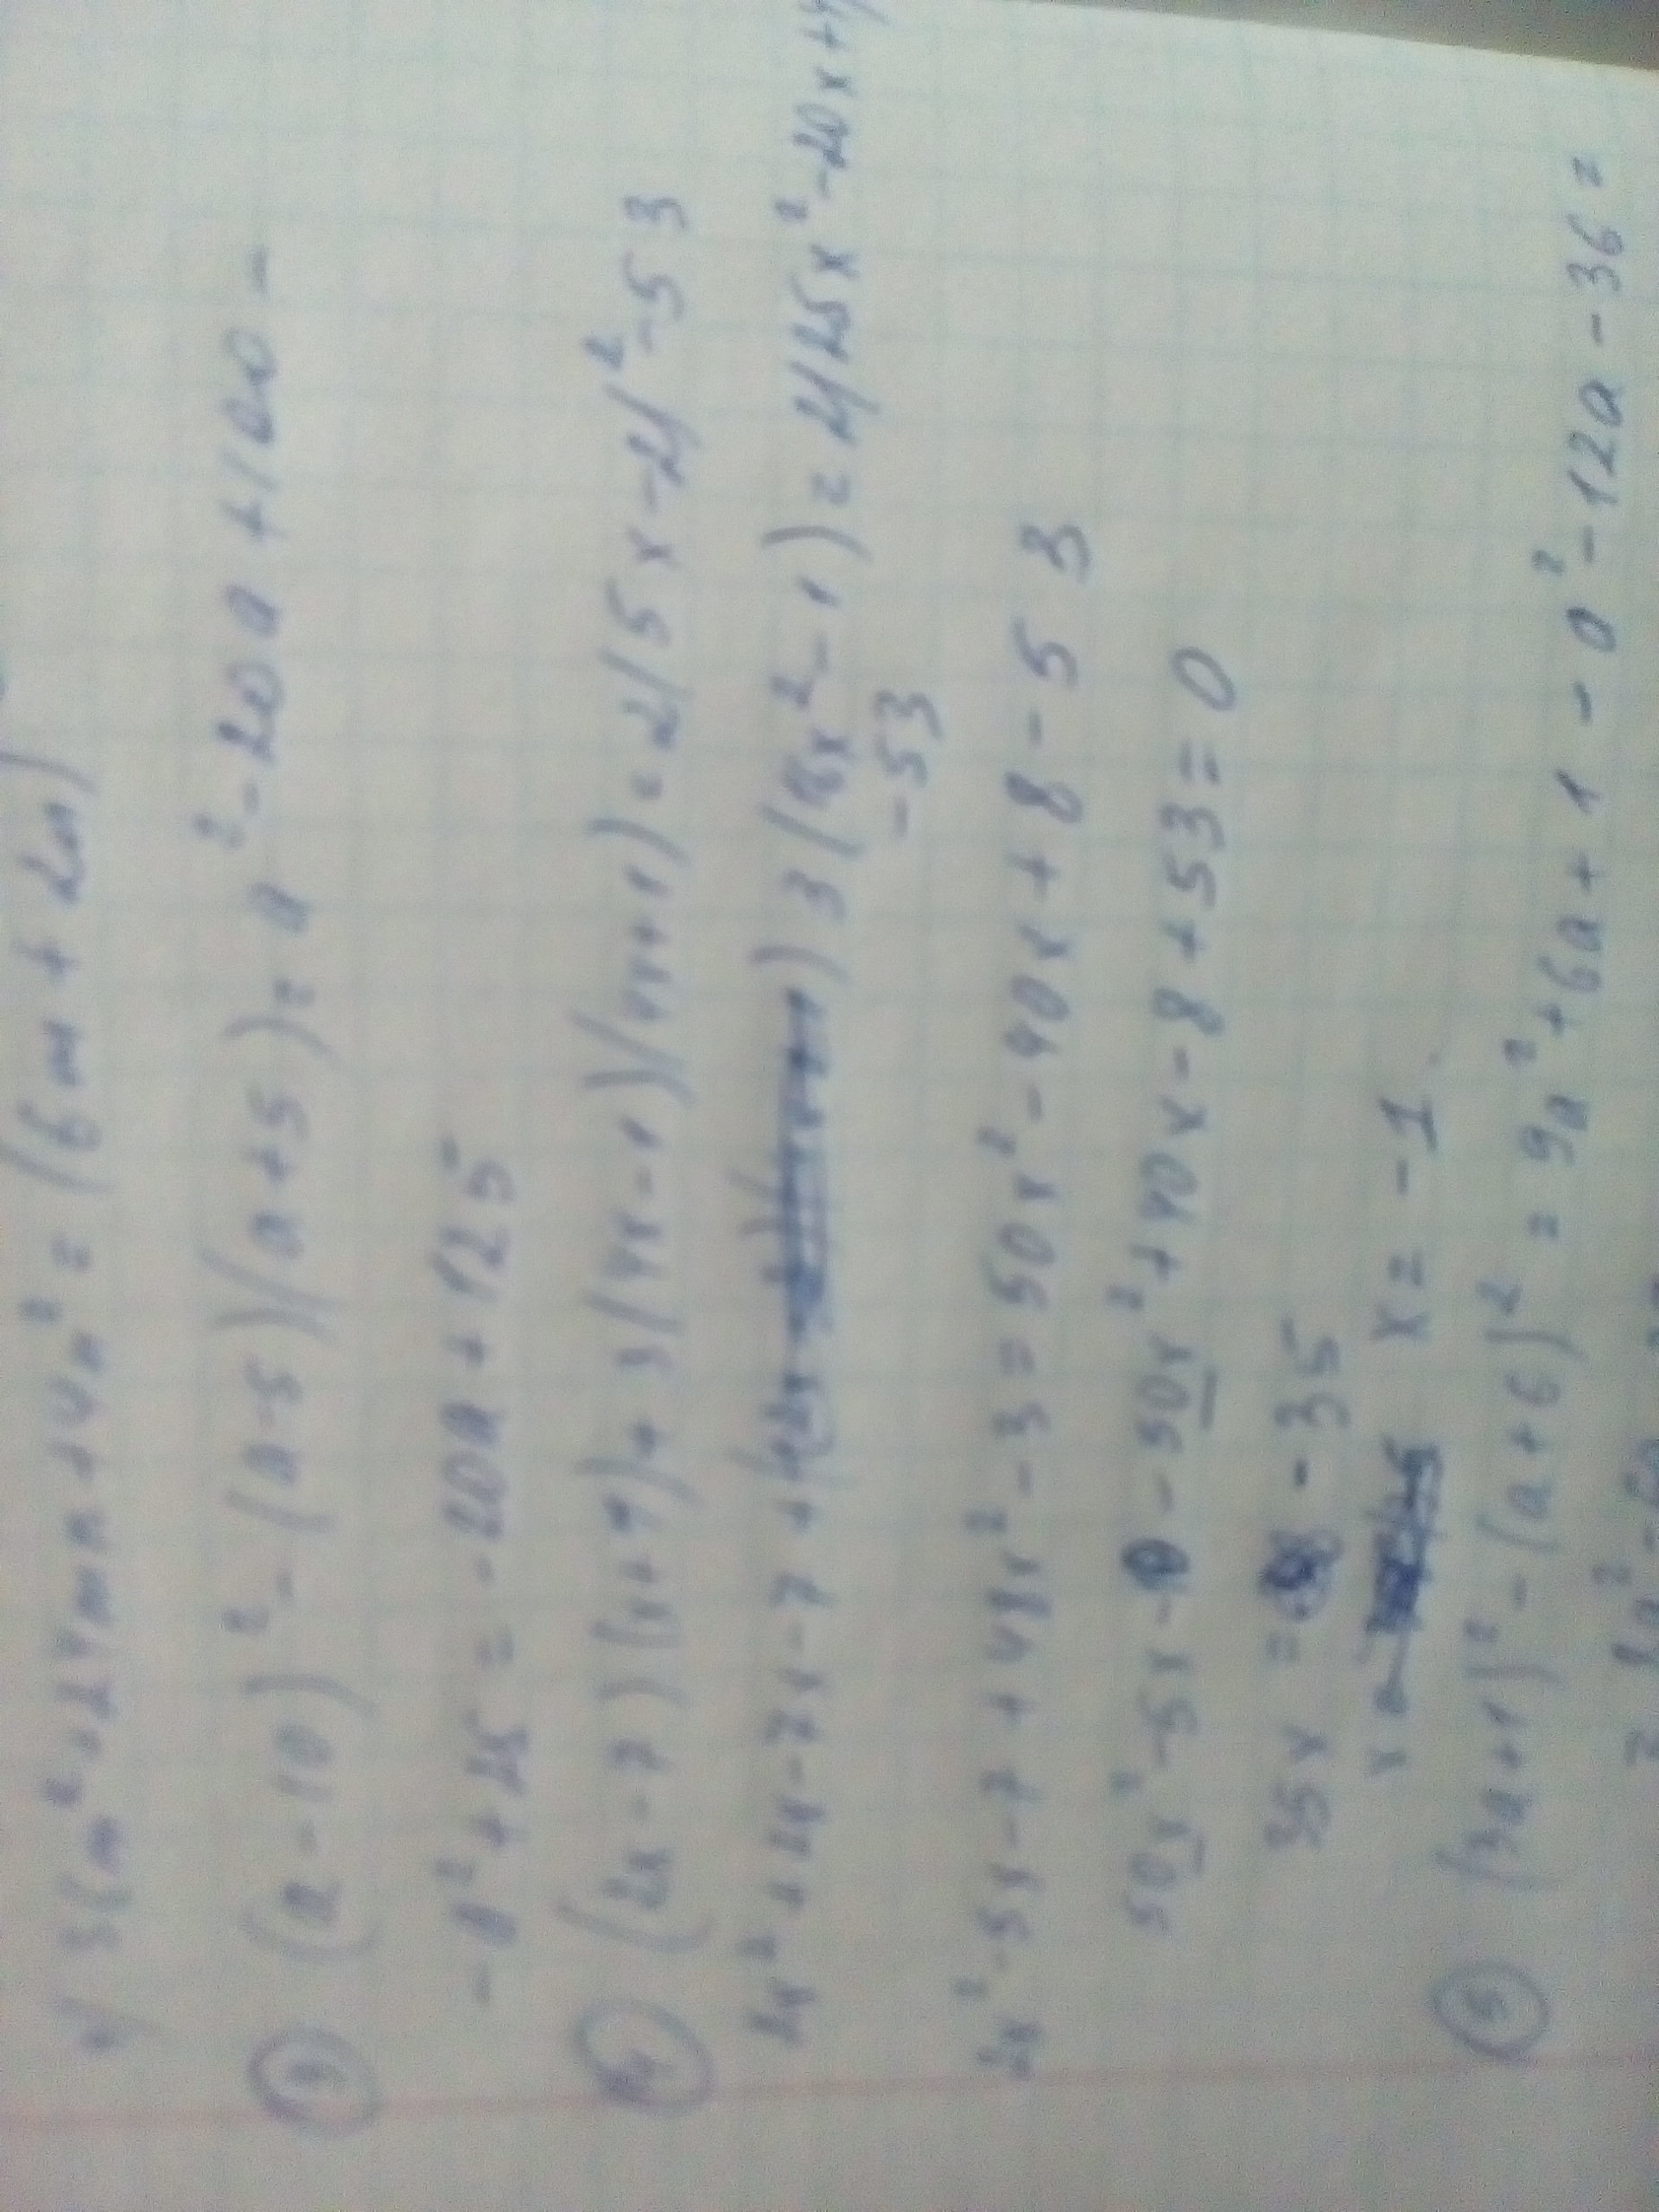 36m² + 24mn + 4n² = (6m + 2n)
③ (a - 10)² - (a-5)(a+5) = a² - 20a + 100 -
- a² + 25 = -20a + 125
(2x - 7)(x+1) + 3(4x-1)(4x+1) = 2(5x-2)² - 53
2x² + 2x - 7x - 7 + 3(16x² - 1) = 2(25x² - 20x + 4)
- 53
2x² - 5x - 7 + 48x² - 3 = 50x² - 40x + 8 - 53
50x² - 5x - 10 - 50x² + 40x - 8 + 53 = 0
35x = - 35
x = -1
⑤ (3a+1)² - (a+6)² = 9a² + 6a + 1 - a² - 12a - 36 =